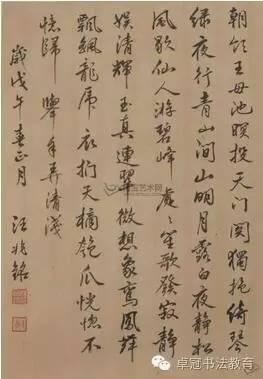 朝飲王母池暝投天门関獨抱綺琴
绿夜行青山间山明月露白夜静松
風歇仙人游碧峰處々笙歌發寂静
娱清輝玉真連翠微想象鸾鳳舞
飄飖龍虎衣扪天摘匏瓜恍惚不
憶歸舉手弄清淺
歲戊午春正月 汪兆銘
卓冠书法教育